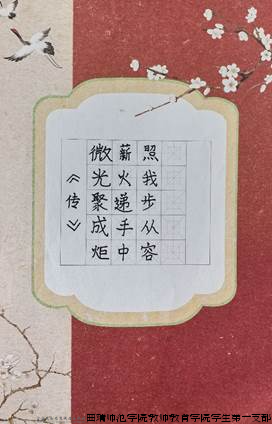 《传》
微光聚成炬
薪火递手中
照我步从容
曲靖师范学院教师教育学院学生第一支部